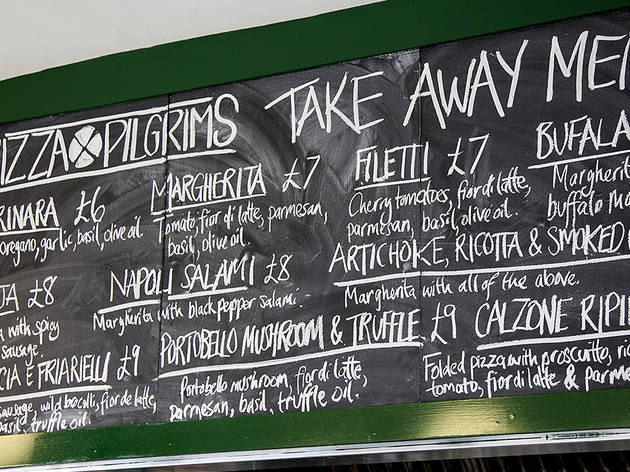 PIZZA PILGRIMS TAKE AWAY MEN
RINARA £6
oregano, garlic, basil, olive oil.
JA £8
a with spicy
sausage.
CIA E FRIARIELLI £9
sausage, wild brocolli, fior de latte,
basil, truffle oil.
MARGHERITA £7
Tomato, fior di latte, parmesan,
basil, olive oil.
NAPOLI SALAMI £8
Margherita with black pepper salami.
PORTOBELLO MUSHROOM & TRUFFLE £9
Portobello mushroom, fior di latte,
parmesan, basil, truffle oil.
FILETTI £7
Cherry tomatoes, fior di latte,
parmesan, basil, olive oil.
ARTICHOKE, RICOTTA & SMOKED
Margherita with all of the above.
BUFALA
Margherit
buffalo mo
CALZONE RIPI
Folded pizza with prosciutto, ric
tomato, fior di latte & parme